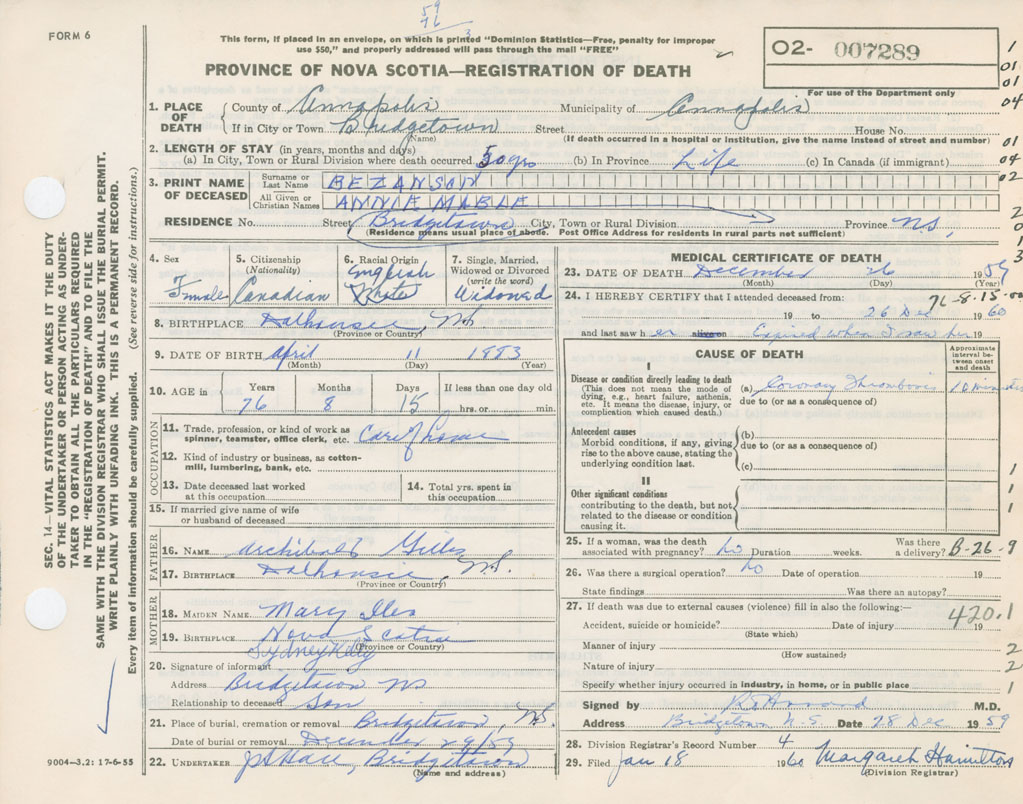 59
76
3
FORM 6
This form, if placed in an envelope, on which is printed "Dominion Statistics—Free, penalty for improper
use $50," and properly addressed will pass through the mail "FREE"
O2- 007289
For use of the Department only
PROVINCE OF NOVA SCOTIA—REGISTRATION OF DEATH
1. PLACE OF DEATH County of Annapolis Municipality of Annapolis
If in City or Town Bridgetown Street House No.
(Name) (If death occurred in a hospital or institution, give the name instead of street and number)
2. LENGTH OF STAY (in years, months and days)
(a) In City, Town or Rural Division where death occurred 50 yrs (b) In Province Life (c) In Canada (if immigrant)
3. PRINT NAME OF DECEASED Surname or Last Name BEZANSON
All Given or Christian Names ANNIE MABLE
RESIDENCE No. Street Bridgetown City, Town or Rural Division Province N.S.
(Residence means usual place of abode. Post Office Address for residents in rural parts not sufficient)
4. Sex Female
5. Citizenship (Nationality) Canadian
6. Racial Origin English White
7. Single, Married, Widowed or Divorced (write the word) Widowed
8. BIRTHPLACE Dalhousie, N.S.
(Province or Country)
9. DATE OF BIRTH April 11 1883
(Month) (Day) (Year)
10. AGE in Years Months Days If less than one day old
76 8 15 hrs. or min.
OCCUPATION
11. Trade, profession, or kind of work as
spinner, teamster, office clerk, etc. Care of home
12. Kind of industry or business, as cotton-
mill, lumbering, bank, etc.
13. Date deceased last worked at this occupation
14. Total yrs. spent in this occupation
15. If married give name of wife
or husband of deceased
FATHER
16. NAME Archibald Gillis
17. BIRTHPLACE Dalhousie, N.S.
(Province or Country)
MOTHER
18. MAIDEN NAME Mary Iles
19. BIRTHPLACE Nova Scotia
(Province or Country)
20. Signature of informant Sydney Kelly
Address Bridgetown NS
Relationship to deceased Son
21. Place of burial, cremation or removal Bridgetown, N.S.
Date of burial or removal December 29/59
22. UNDERTAKER Bridgetown
(Name and address)
MEDICAL CERTIFICATE OF DEATH
23. DATE OF DEATH December 26 1959
(Month) (Day) (Year)
76-8-15-00
24. I HEREBY CERTIFY that I attended deceased from:
19 to 26 Dec 1960
and last saw her alive on Expired when I saw her 19
CAUSE OF DEATH
Approximate interval between onset and death
I
Disease or condition directly leading to death
(This does not mean the mode of
dying, e.g., heart failure, asthenia,
etc. It means the disease, injury, or
complication which caused death.)
(a) Coronary Thrombosis 10 minutes
due to (or as a consequence of)
Antecedent causes
Morbid conditions, if any, giving
rise to the above cause, stating the
underlying condition last.
(b)
due to (or as a consequence of)
(c)
II
Other significant conditions
contributing to the death, but not
related to the disease or condition
causing it.
25. If a woman, was the death
associated with pregnancy? No Duration weeks. Was there a delivery? B-26-9
26. Was there a surgical operation? No Date of operation 19
State findings Was there an autopsy?
27. If death was due to external causes (violence) fill in also the following:—
420.1
Accident, suicide or homicide? Date of injury 19
(State which)
Manner of injury
(How sustained)
Nature of injury
Specify whether injury occurred in industry, in home, or in public place
Signed by M.D.
Address Bridgetown N.S Date 28 Dec 1959
28. Division Registrar's Record Number 4
29. Filed Jan 18 1960 Margaret Hamilton
(Division Registrar)
1
01
01
04
01
04
02
2
0
1
3
1
1
1
2
2
1
SEC. 14—VITAL STATISTICS ACT MAKES IT THE DUTY
OF THE UNDERTAKER OR PERSON ACTING AS UNDER-
TAKER TO OBTAIN ALL THE PARTICULARS REQUIRED
IN THE "REGISTRATION OF DEATH" AND TO FILE THE
SAME WITH THE DIVISION REGISTRAR WHO SHALL ISSUE THE BURIAL PERMIT.
WRITE PLAINLY WITH UNFADING INK. THIS IS A PERMANENT RECORD.
Every item of information should be carefully supplied. (See reverse side for instructions.)
9004-3,2: 17-6-55